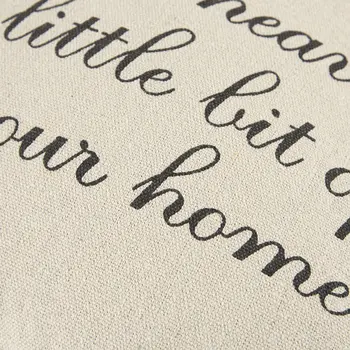 hear
little bit o
our home